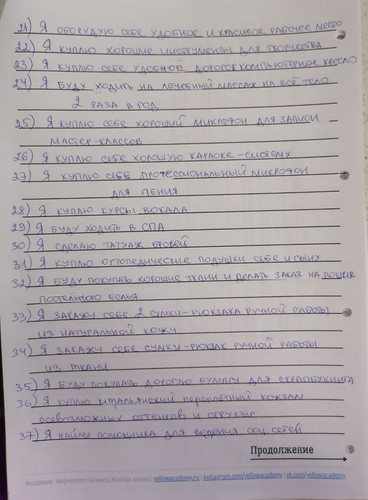 21) Я оборудую себе удобное и красивое рабочее место
22) Я куплю хорошие инструменты для творчества
23) Я куплю себе удобное, дорогое компьютерное кресло
24) Я буду ходить на лечебный массаж на всё тело
2 раза в год
25) Я куплю себе хороший микрофон для записи
мастер-классов
26) Я куплю себе хорошую караоке-систему
27) Я куплю себе профессиональный микрофон
для пения
28) Я куплю курсы вокала
29) Я буду ходить в спа
30) Я сделаю татуаж бровей
31) Я куплю ортопедические подушки себе и сыну
32) Я буду покупать хорошие ткани и делать заказ на пошив
постельного белья
33) Я закажу себе 2 сумки-рюкзака ручной работы
из натуральной кожи
34) Я закажу себе сумку-рюкзак ручной работы
из ткани
35) Я буду покупать дорогую бумагу для скрапбукинга
36) Я куплю итальянский переплётный кожзам
всевозможных оттенков и фактур
37) Я найму помощника для ведения соц сетей
Продолжение
yellowacademy.ru | instagram.com/yellowacademy | vk.com/yellowacademy